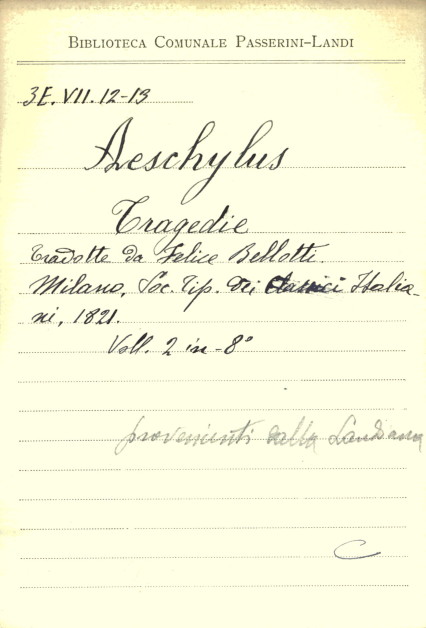 BIBLIOTECA COMUNALE PASSERINI-LANDI
3E. VII. 12-13
Aeschylus
Tragedie
tradotte da Felice Bellotti.
Milano, Soc. Tip. dei Classici Italia-
ni, 1821.
Voll. 2 in-8°
provenienti dalla Landiana
C